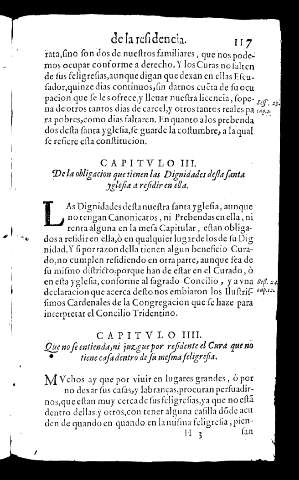 de la residencia.
117
rata, sino son dos de nuestros familiares, que nos podemos
ocupar conforme a derecho. Y los Curas no falten
de sus feligresias, aunque digan que dexan en ellas Escusador,
quinze dias continuos, sin darnos cuẽta de su ocu
pacion que se les ofrece, y lleuar nuestra licencia, so pena
de otros tantos dias de carcel, y otros tantos reales pa
ra pobres, como dias faltaren. En quanto a los prebenda
dos desta santa yglesia, se guarde la costumbre, a la qual
se refiere esta constitucion.
CAPITVLO III.
De la obligacion que tienen las Dignidades desta santa
yglesia a residir en ella.
LAs Dignidades desta nuestra santa yglesia, aunque
no tengan Canonicatos, ni Prebendas en ella, ni
renta alguna en la mesa Capitular, estan obligados
a residir en ella, ò en qualquier lugar de los de su Dig
nidad. Y si por razon della tienen algun beneficio Curado,
no cumplen residiendo en otra parte, aunque sea de
su mismo districto, porque han de estar en el Curado, ò
en esta yglesia, conforme al sagrado Concilio, y a vna
declaracion que acerca desto nos embiaron los Illustrissimos
Cardenales de la Congregacion que se haze para
interpretar el Concilio Tridentino.
CAPITVLO IIII.
Que no se entienda, ni juzgue por residente el Cura que no
tiene casa dentro de su mesma feligresia.
MVchos ay que por viuir en lugares grandes, ò por
no dexar sus casas, y labranças, procuran persuadirnos,
que estan muy cerca de sus feligresias, ya que no estã
dentro dellas, y otros, con tener alguna casilla dõde acu
den de quando en quando en la misma feligresia, pien-
H 3
san